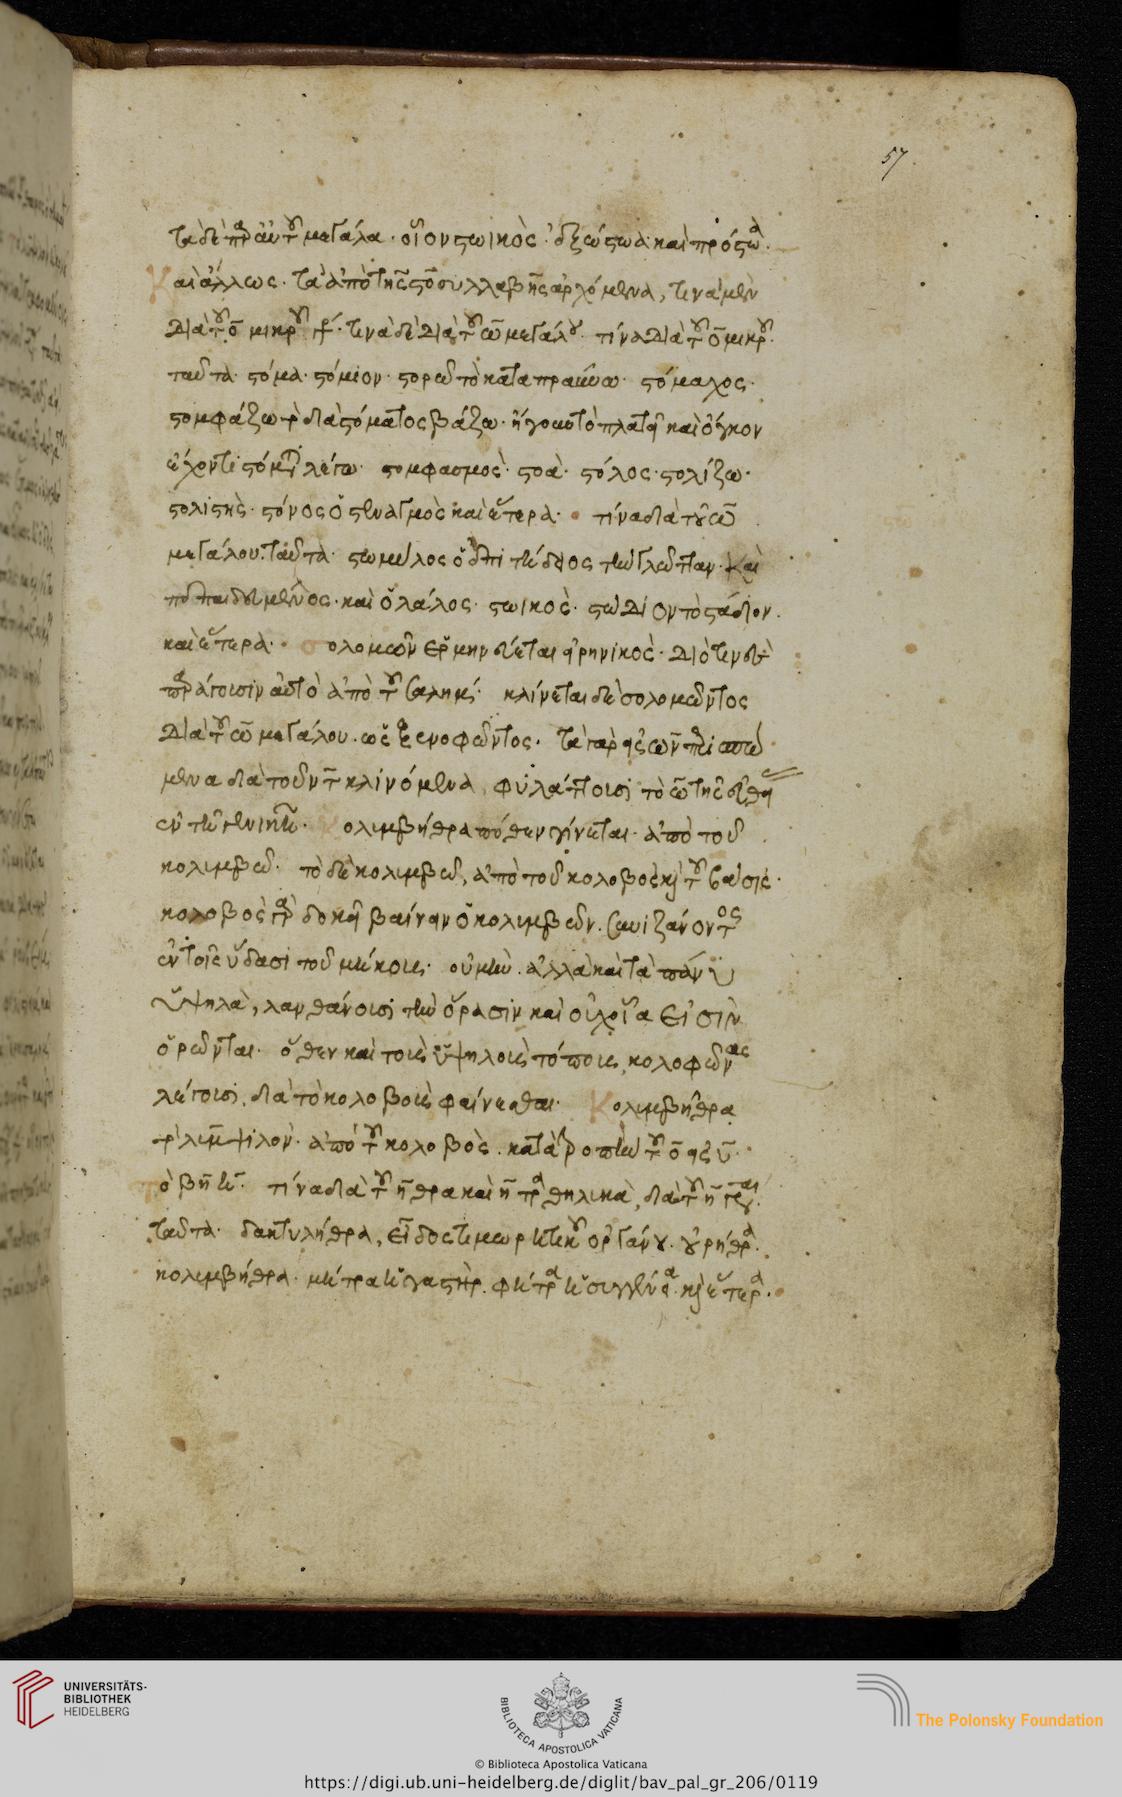 57
τὰ δὲ παρὰ αὐτοῦ μεγάλα· οἷον στωικὸς· ἐξώστωα καὶ πρόστωα·
Καὶ ἄλλως· τὰ ἀπὸ τῆς στο συλλαβῆς ἀρχόμενα, τινὰ μὲν
διὰ τοῦ ο μικροῦ γράφεται· τινὰ δὲ διὰ τοῦ ω μεγάλου· τίνα διὰ τοῦ ο μικροῦ·
ταῦτα· στόμα· στόμιον· στορῶ τὸ καταπραΰνω· στόμαχος·
στομφάζω τὸ διὰ στόματος βάζω· ἤγουν τὸ πλατεῖ καὶ ὄγκον
ἔχοντι στόματι λέγω· στομφασμὸς· στοὰ· στόλος· στολίζω·
στολιστὴς· στόνος ὁ στεναγμὸς καὶ ἕτερα· τίνα διὰ τοῦ ω
μεγάλου· ταῦτα· στωμύλος ὁ
καὶ ὁ λάλος· στωικὸς· στώδιον τὸ στάδιον·
καὶ ἕτερα· Σολομῶν ἑρμηνεύεται εἰρηνικὸς· διό τινες
γράφουσιν αὐτὸ ἀπὸ τοῦ κλίνεται δὲ σολομῶντος
διὰ τοῦ ω μεγάλου· ὡς ξενοφῶντος· τὰ γὰρ εἰς ων περισπώ
μενα διὰ τοῦ ντ κλινόμενα, φυλάττουσι τὸ ω τῆς εὐθείας
ἐν τῇ γενικῇ· Κολιμβήθρα πόθεν γίνεται· ἀπὸ τοῦ
κολιμβῶ· τὸ δὲ κολιμβῶ, ἀπὸ τοῦ κολοβὸς καὶ τοῦ βάσις·
κολοβὸς γὰρ δοκεῖ βαίνειν ὁ κολιμβῶν·
ἐν τοῖς ὕδασι τοῦ μήκους· οὐ μὴν ἀλλὰ καὶ τὰ πάνυ
ὑψηλὰ, λανθάνουσι τὴν ὅρασιν καὶ οὐχ οἷα εἰσὶν
ὁρῶνται· ὅθεν καὶ τοὺς ὑψηλοὺς τόπους, κολοφῶνας
λέγουσι, διὰ τὸ κολοβοὺς φαίνεσθαι· Κολιμβήθρα
τὸ λιμ ψιλόν· ἀπὸ τοῦ κολοβὸς· κατὰ τροπὴν τοῦ ο εἰς υ·
τὸ βη η· τίνα διὰ τοῦ ηθρα καὶ ητρα θηλικὰ, διὰ τοῦ η γράφεται·
ταῦτα· δακτυλήθρα, εἶδος τιμωρητικοῦ ὀργάνου· οὐρήθρα·
κολιμβήθρα· μήτρα ἡ γαστὴρ· φήτρα ἡ συγγένεια· καὶ ἕτερα·
UNIVERSITÄTS-
BIBLIOTHEK
HEIDELBERG
BIBLIOTECA APOSTOLICA VATICANA
The Polonsky Foundation
© Biblioteca Apostolica Vaticana
https://digi.ub.uni-heidelberg.de/diglit/bav_pal_gr_206/0119